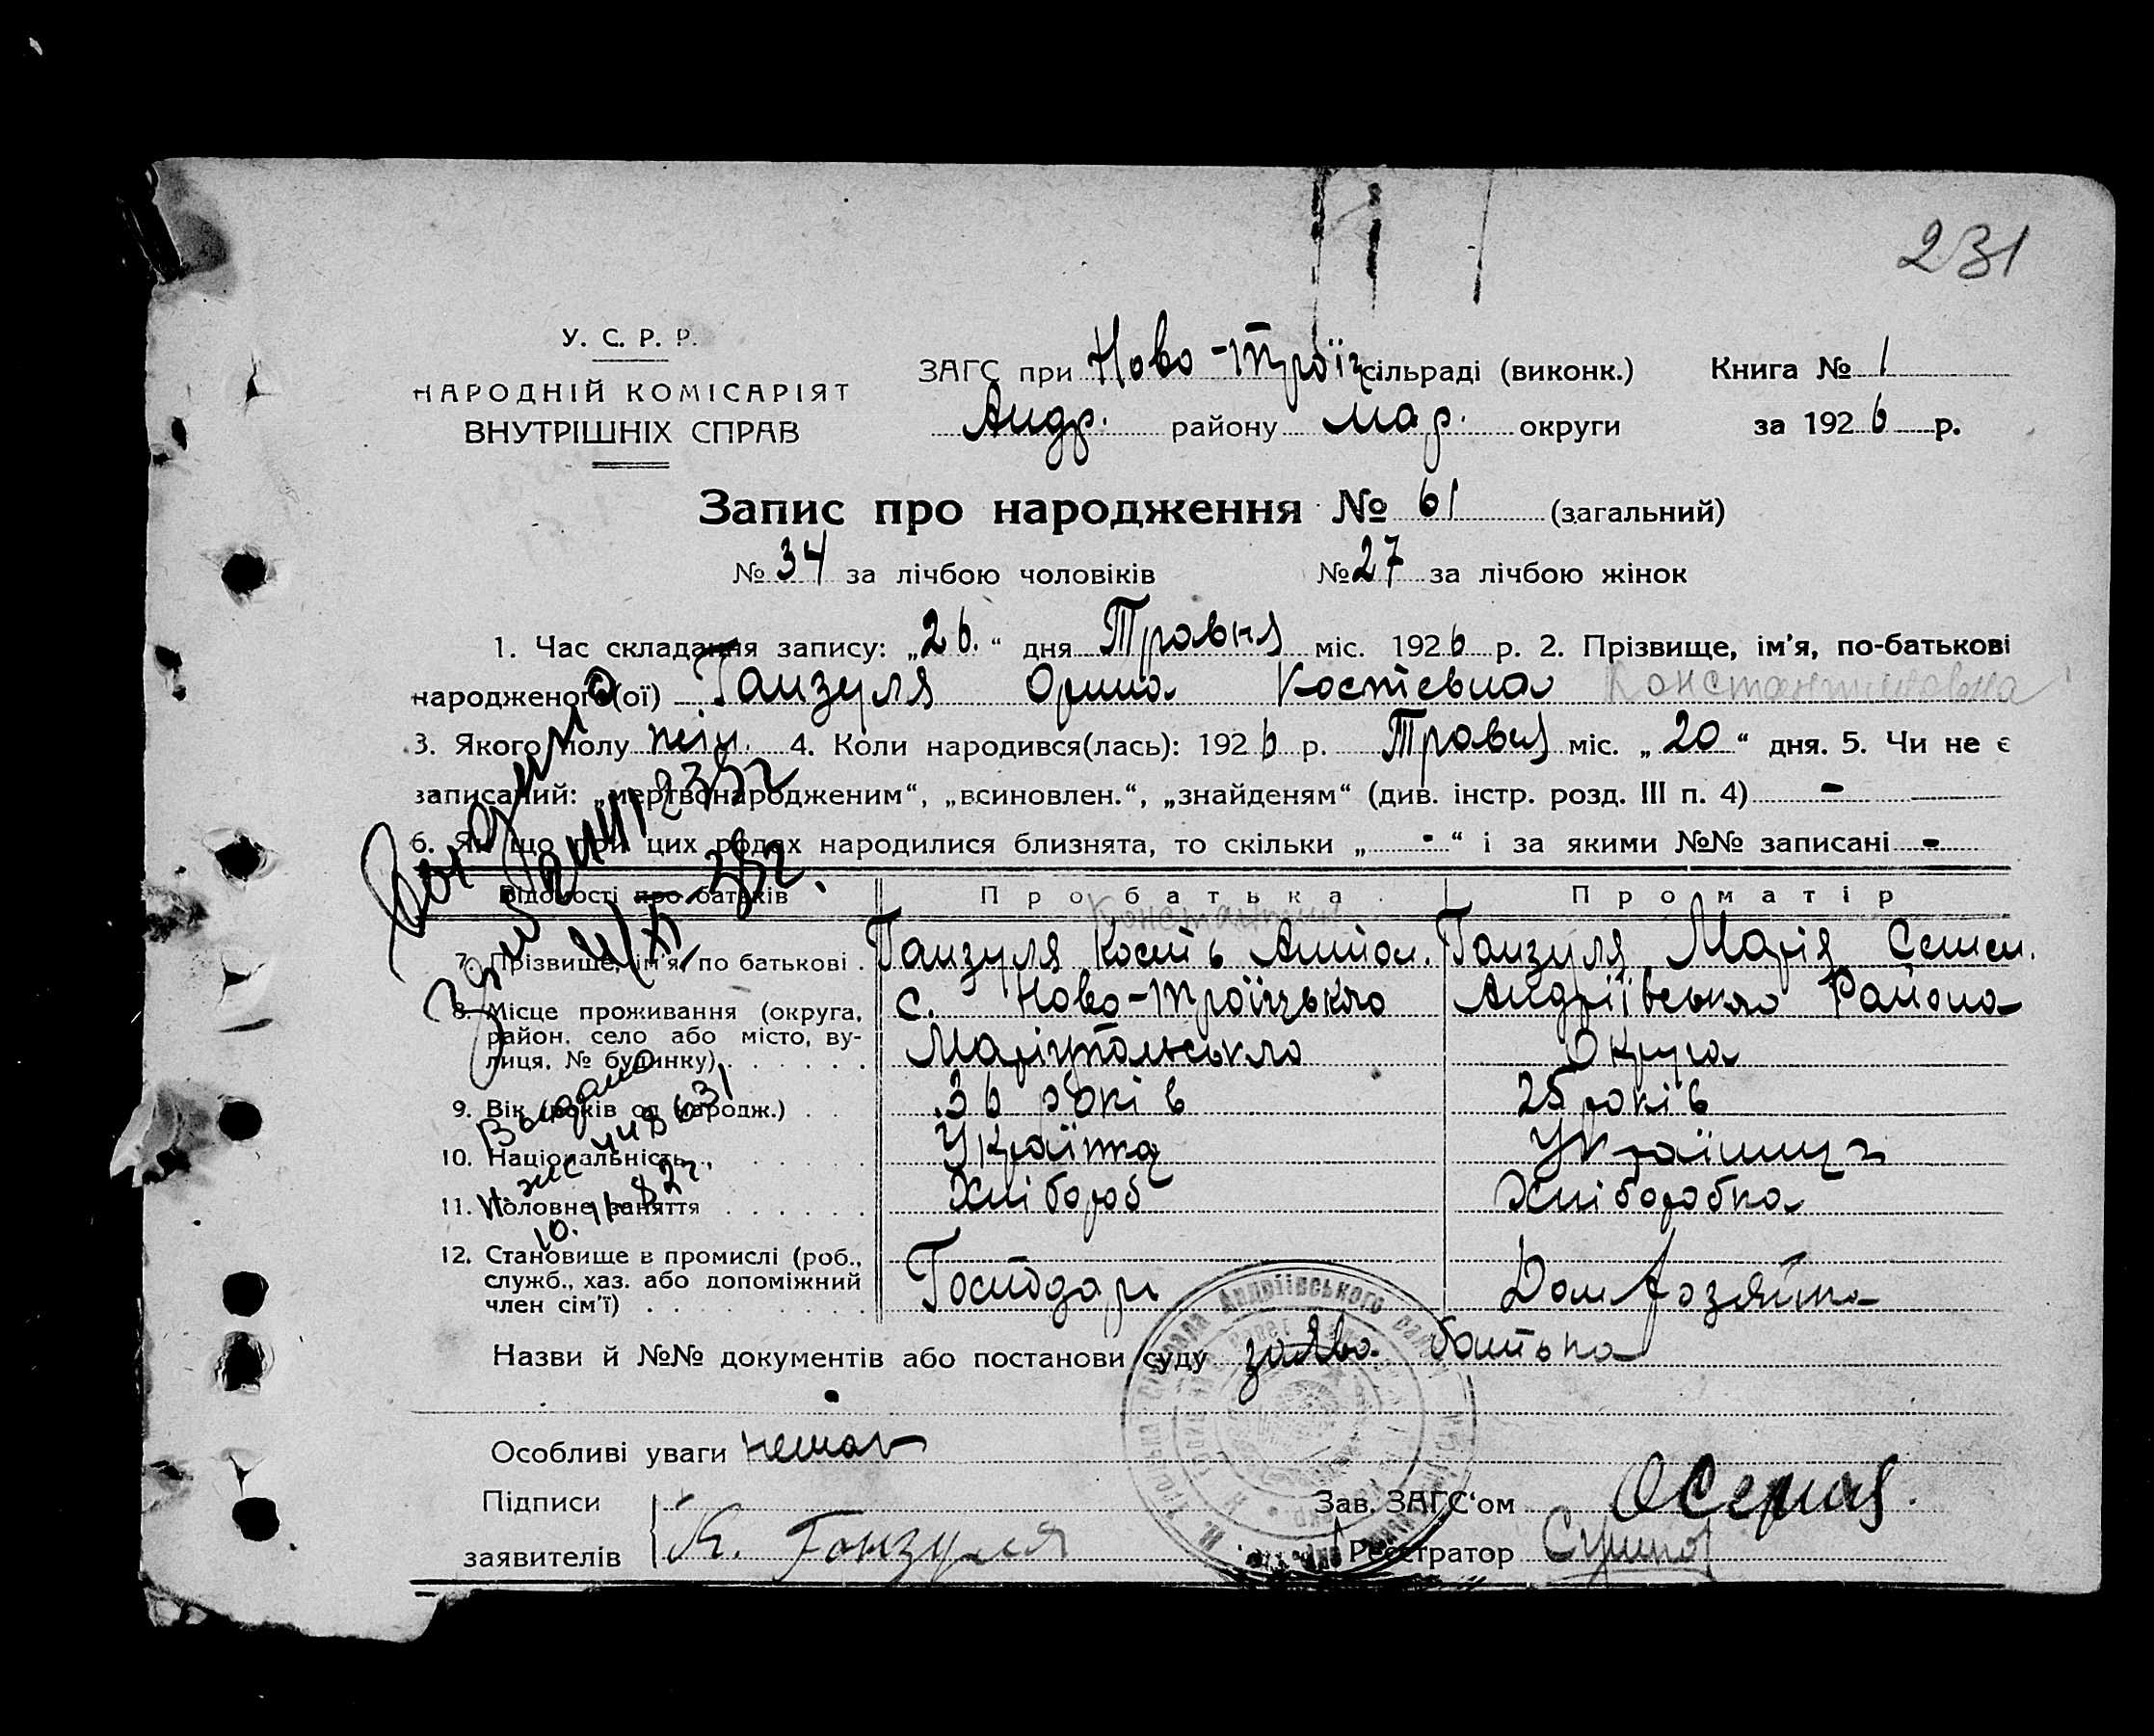 231
У. С. Р. Р.
НАРОДНІЙ КОМІСАРІЯТ
ВНУТРІШНІХ СПРАВ
ЗАГС при Ново-Троїц. сільраді (виконк.) Книга № 1
Андр. району Мар. округи за 1926 р.
Запис про народження № 61 (загальний)
№ 34 за лічбою чоловіків № 27 за лічбою жінок
1. Час складання запису: „26.“ дня Травня міс. 1926 р. 2. Прізвище, ім'я, по-батькові
народженого(ої) Ганзуля Орина Костєвна Константиновна
3. Якого полу жін. 4. Коли народився(лась): 1926 р. Травня міс. „20“ дня. 5. Чи не є
записаний: „мертвонародженим“, „всиновлен.“, „знайденям“ (див. інстр. розд. III п. 4) -
6. Якщо при цих родах народилися близнята, то скільки „-“ і за якими №№ записані -
Відомості про батьків Про батька Про матір
Константин
7. Прізвище, ім'я, по батькові . Ганзуля Кость Антон. Ганзуля Марія Семен.
8. Місце проживання (округа, с. Ново-Троїцького Андріївського Района
район, село або місто, ву-
лиця, № будинку) . . . . . . Маріупольського Округа
9. Вік (років од народж.) . . 36 років 25 років
10. Національність . . . . . . Україта Українця
11. Головне заняття . . . . . . Хлібороб Хліборобка
12. Становище в промислі (роб.,
служб., хаз. або допоміжний Господарь Домхозяйка
член сім'ї) . . . . . . . . .
Видано
Назви й №№ документів або постанови суду заява батька
Особливі уваги немає
Підписи Зав. ЗАГС'ом
заявителів К. Ганзуля Реєстратор